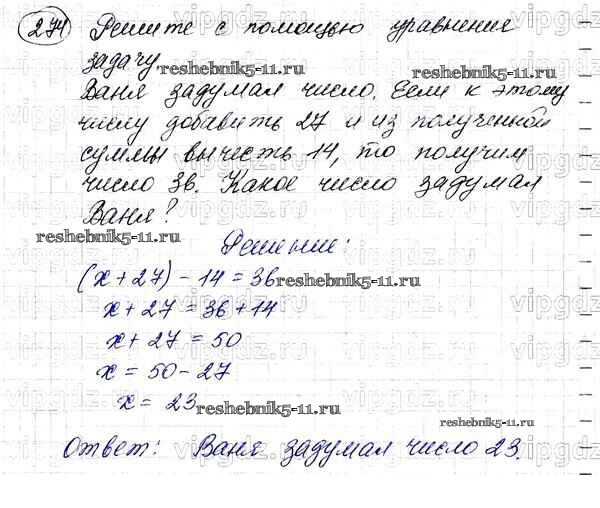 274 Решите с помощью уравнения
задачу.
reshebnik5-11.ru
Ваня задумал число. Если к этому
числу добавить 27 и из полученной
суммы вычесть 14, то получим
число 36. Какое число задумал
Ваня?
reshebnik5-11.ru
Решение:
(x + 27) - 14 = 36
reshebnik5-11.ru
x + 27 = 36 + 14
x + 27 = 50
x = 50 - 27
x = 23
reshebnik5-11.ru
reshebnik5-11.ru
Ответ: Ваня задумал число 23.
vipgdz.ru